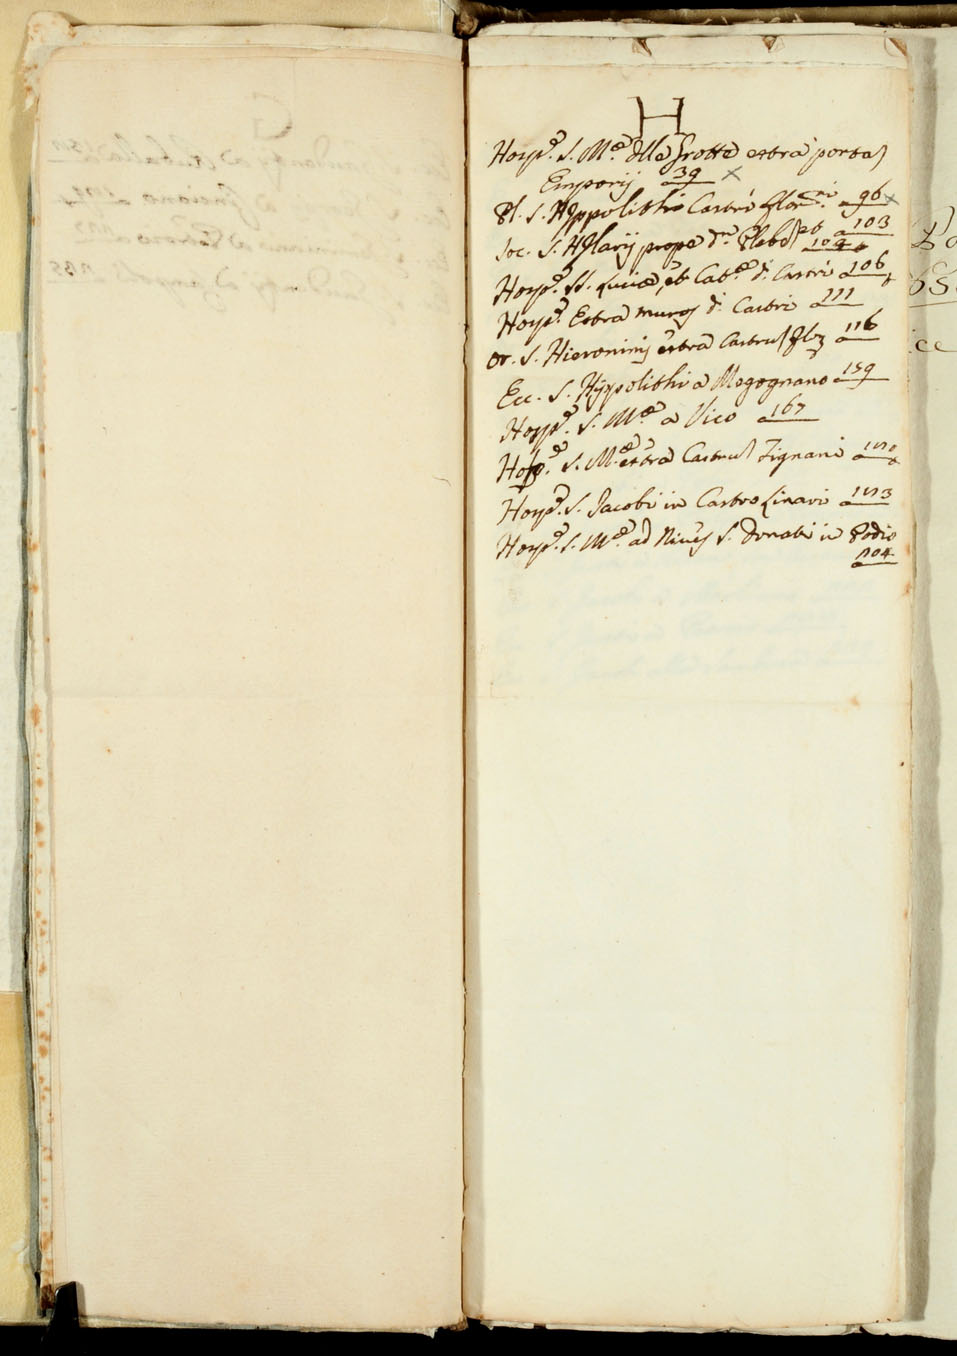 H
Hosp.e S. M.e dlla Grotta extra portas
Emporij 39
Pl. S. Hyppolithi Castri Flor.ni 96
Soc. S. Hylarij prope d.m Pleb. 103
104
Hosp.e SS. Luciæ, et Cat.e d.i Castri 106
Hosp.e Extra muros d.i Castri 111
Or. S. Hieronimj extra Castrum 116
Ecc. S. Hyppolithi a Megognano 159
Hosp.e S. M.e a Vico 167
Hosp.e S. M.e extra Castrum Zignani
Hosp.e S. Jacobi in Castro Linari 173
Hosp.e S. M.e ad Nives S. Donati in Podio